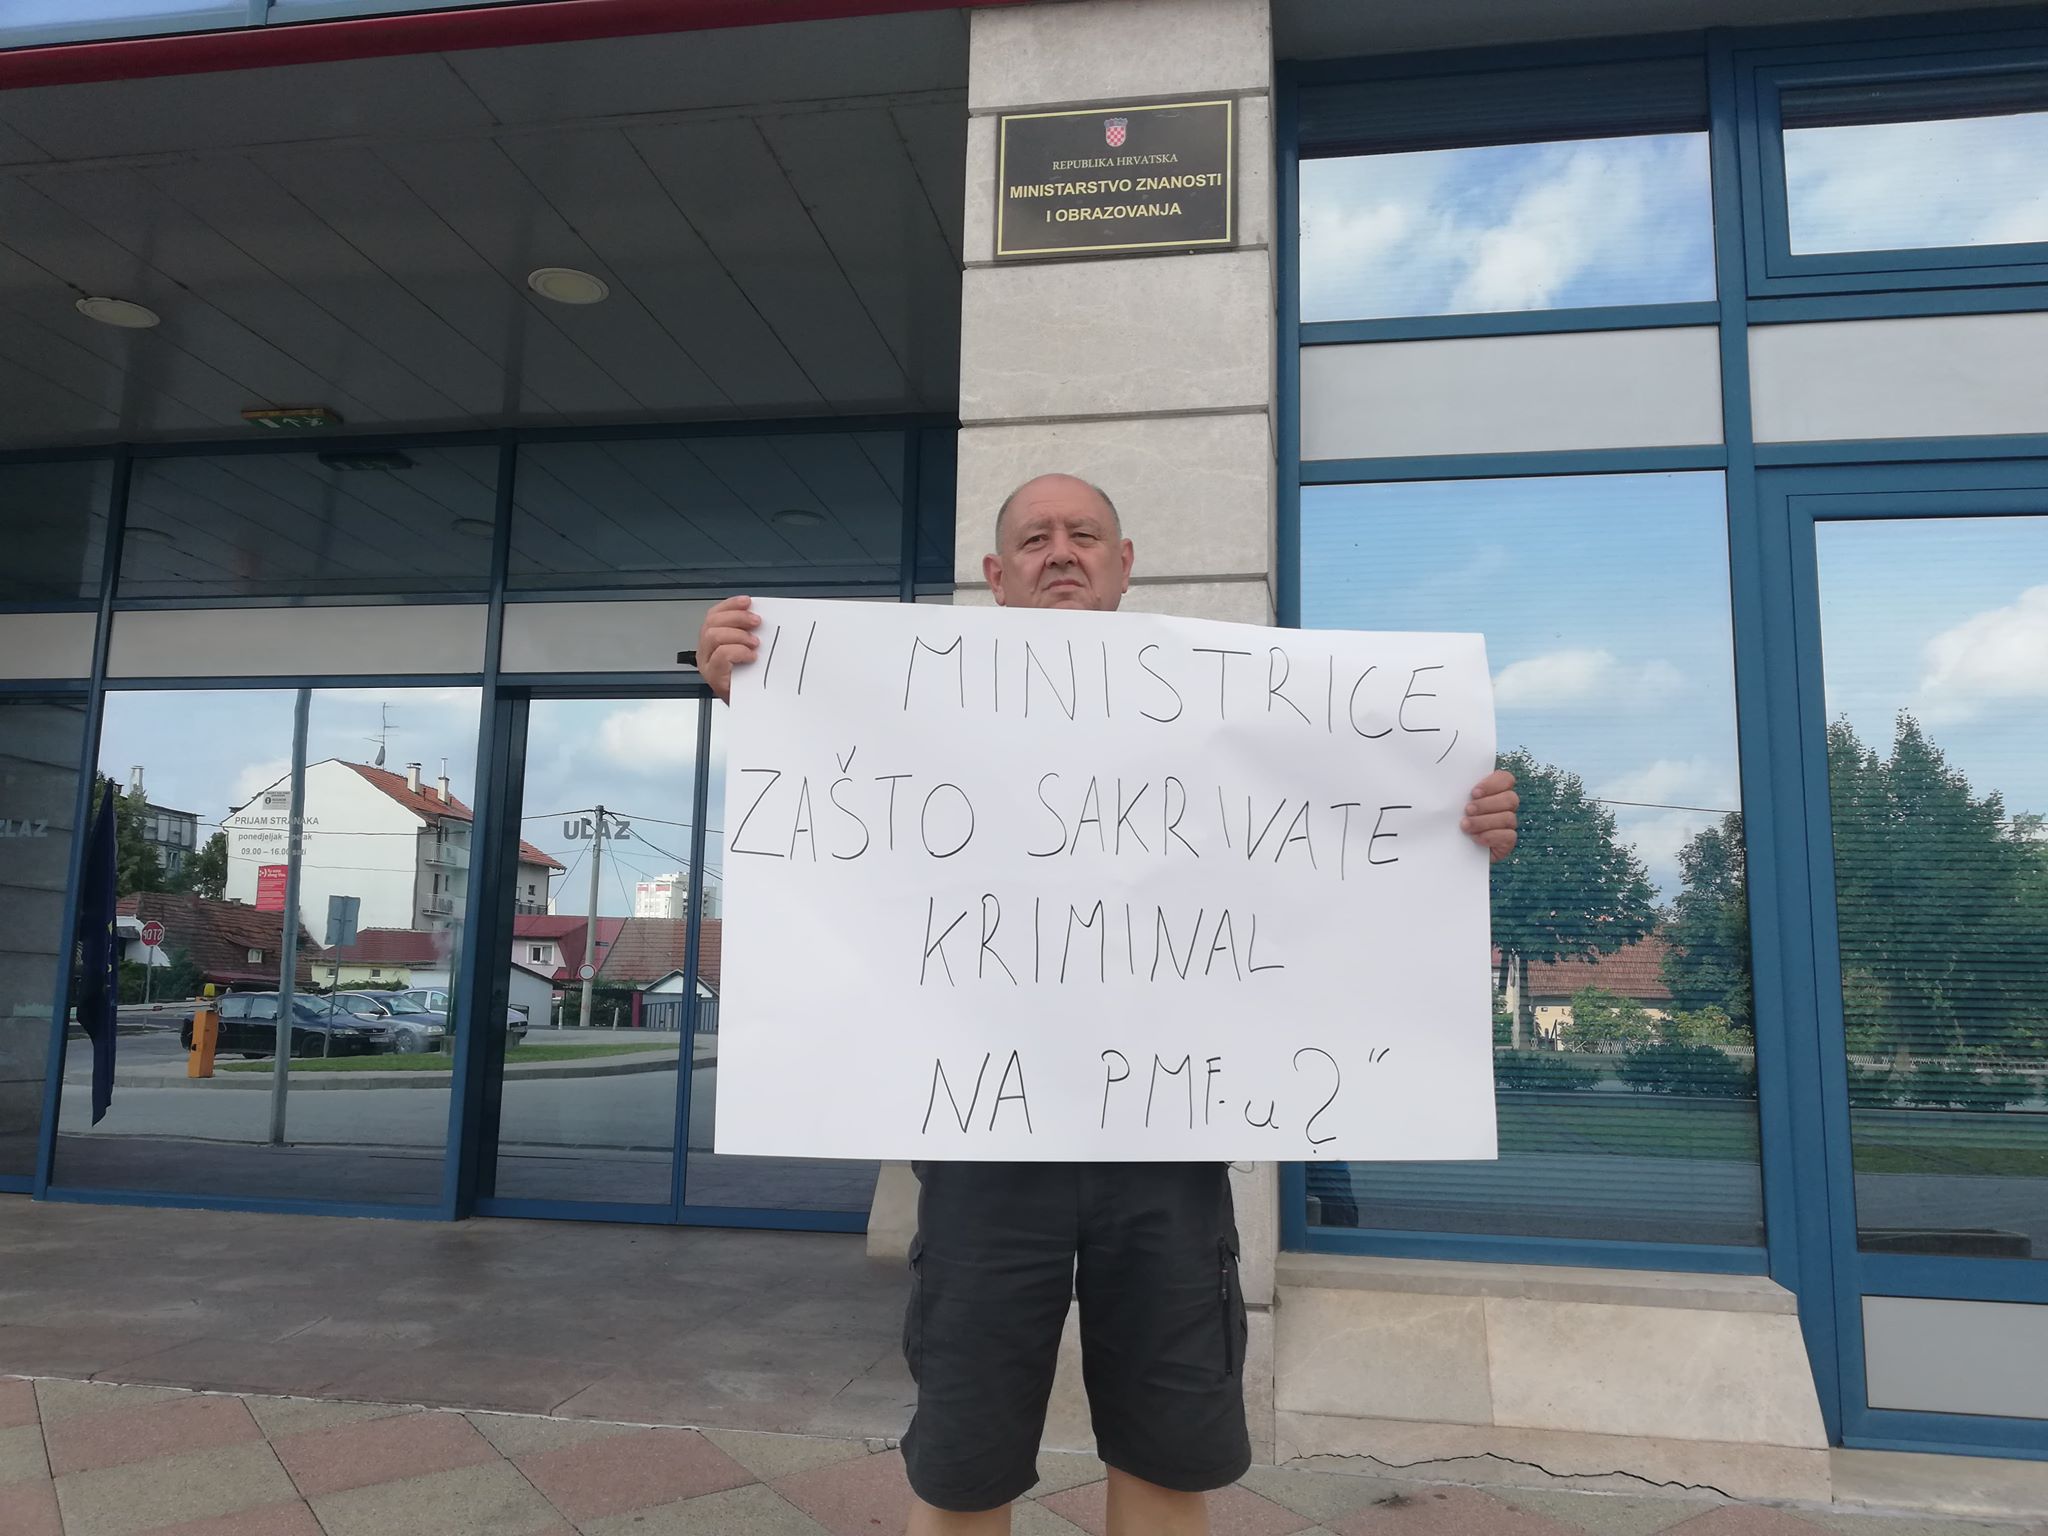 REPUBLIKA HRVATSKA
MINISTARSTVO ZNANOSTI
I OBRAZOVANJA
" MINISTRICE,
ZAŠTO SAKRIVATE
KRIMINAL
NA PMF-u?"
IZLAZ
PRIJAM STRANAKA
ponedjeljak – petak
09.00 – 16.00 sati
ULAZ
STOP